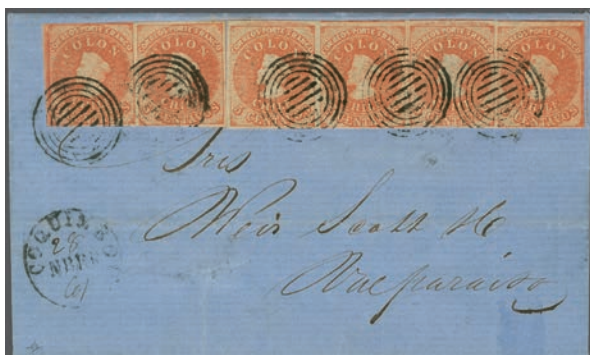 COLON COLON COLON COLON COLON COLON
Sres
Weir Scott &C
Valparaiso
COQUIMBO
28
NBRE
61